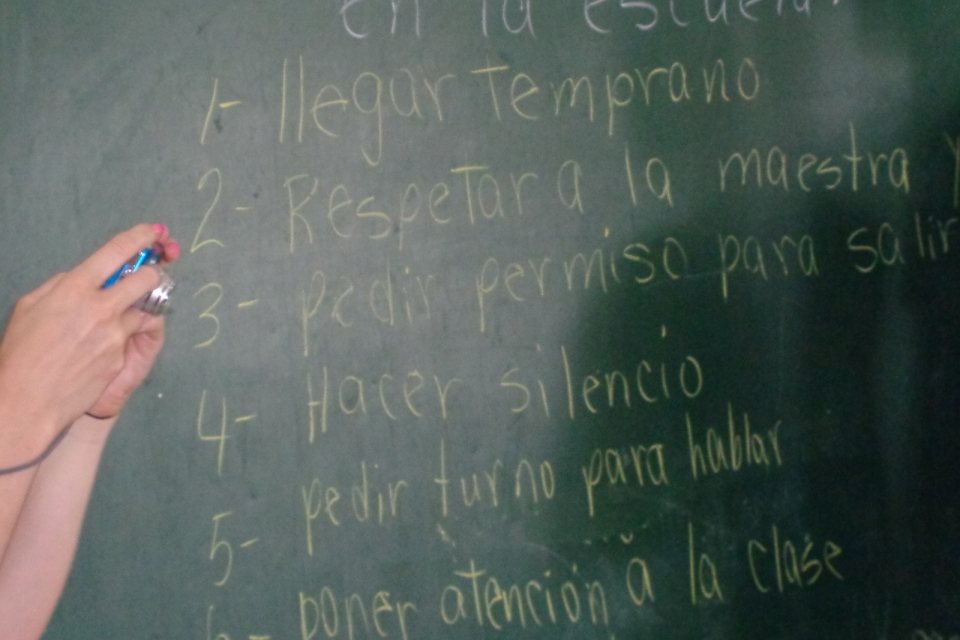 en la escuela.
1- llegar Temprano
2- RespeTar a la maestra y
3- pedir permiso para salir
4- Hacer silencio
5- pedir turno para hablar
6- poner atención a la clase